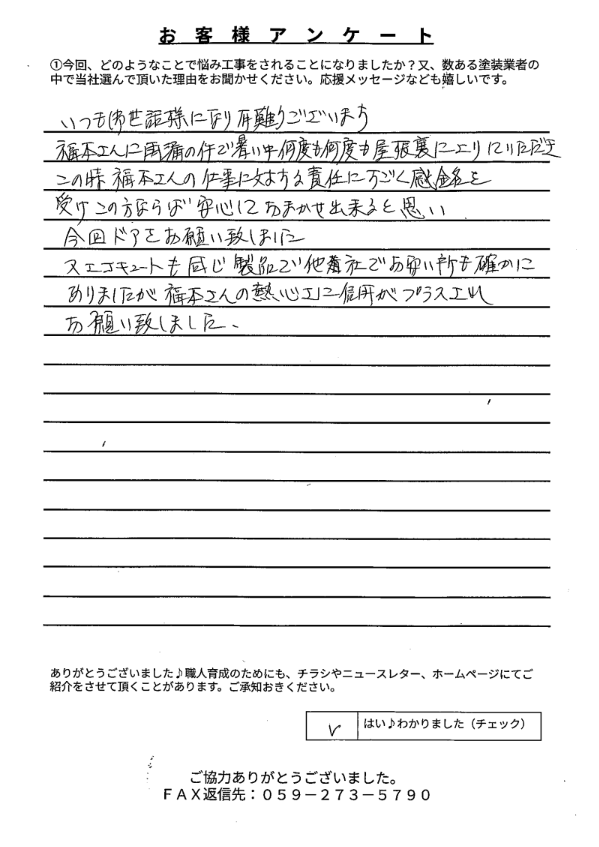 お客様アンケート
①今回、どのようなことで悩み工事をされることになりましたか?又、数ある塗装業者の
中で当社選んで頂いた理由をお聞かせください。応援メッセージなども嬉しいです。
いつもお世話様になり有難うございます
福本さんに雨漏の件で暑い中何度も何度も屋根裏に入っていただき
この時福本さんの仕事に対する責任にすごく感銘を
受けこの方ならば安心しておまかせ出来ると思い
今回ドアをお願い致しました
又エコキュートも同じ製品で他社でお安い所も確かに
ありましたが福本さんの熱心さに信用がプラスされ
お願い致しました、
ありがとうございました♪職人育成のためにも、チラシやニュースレター、ホームページにてご
紹介をさせて頂くことがあります。ご承知おきください。
はい♪わかりました(チェック)
ご協力ありがとうございました。
FAX返信先:059-273-5790